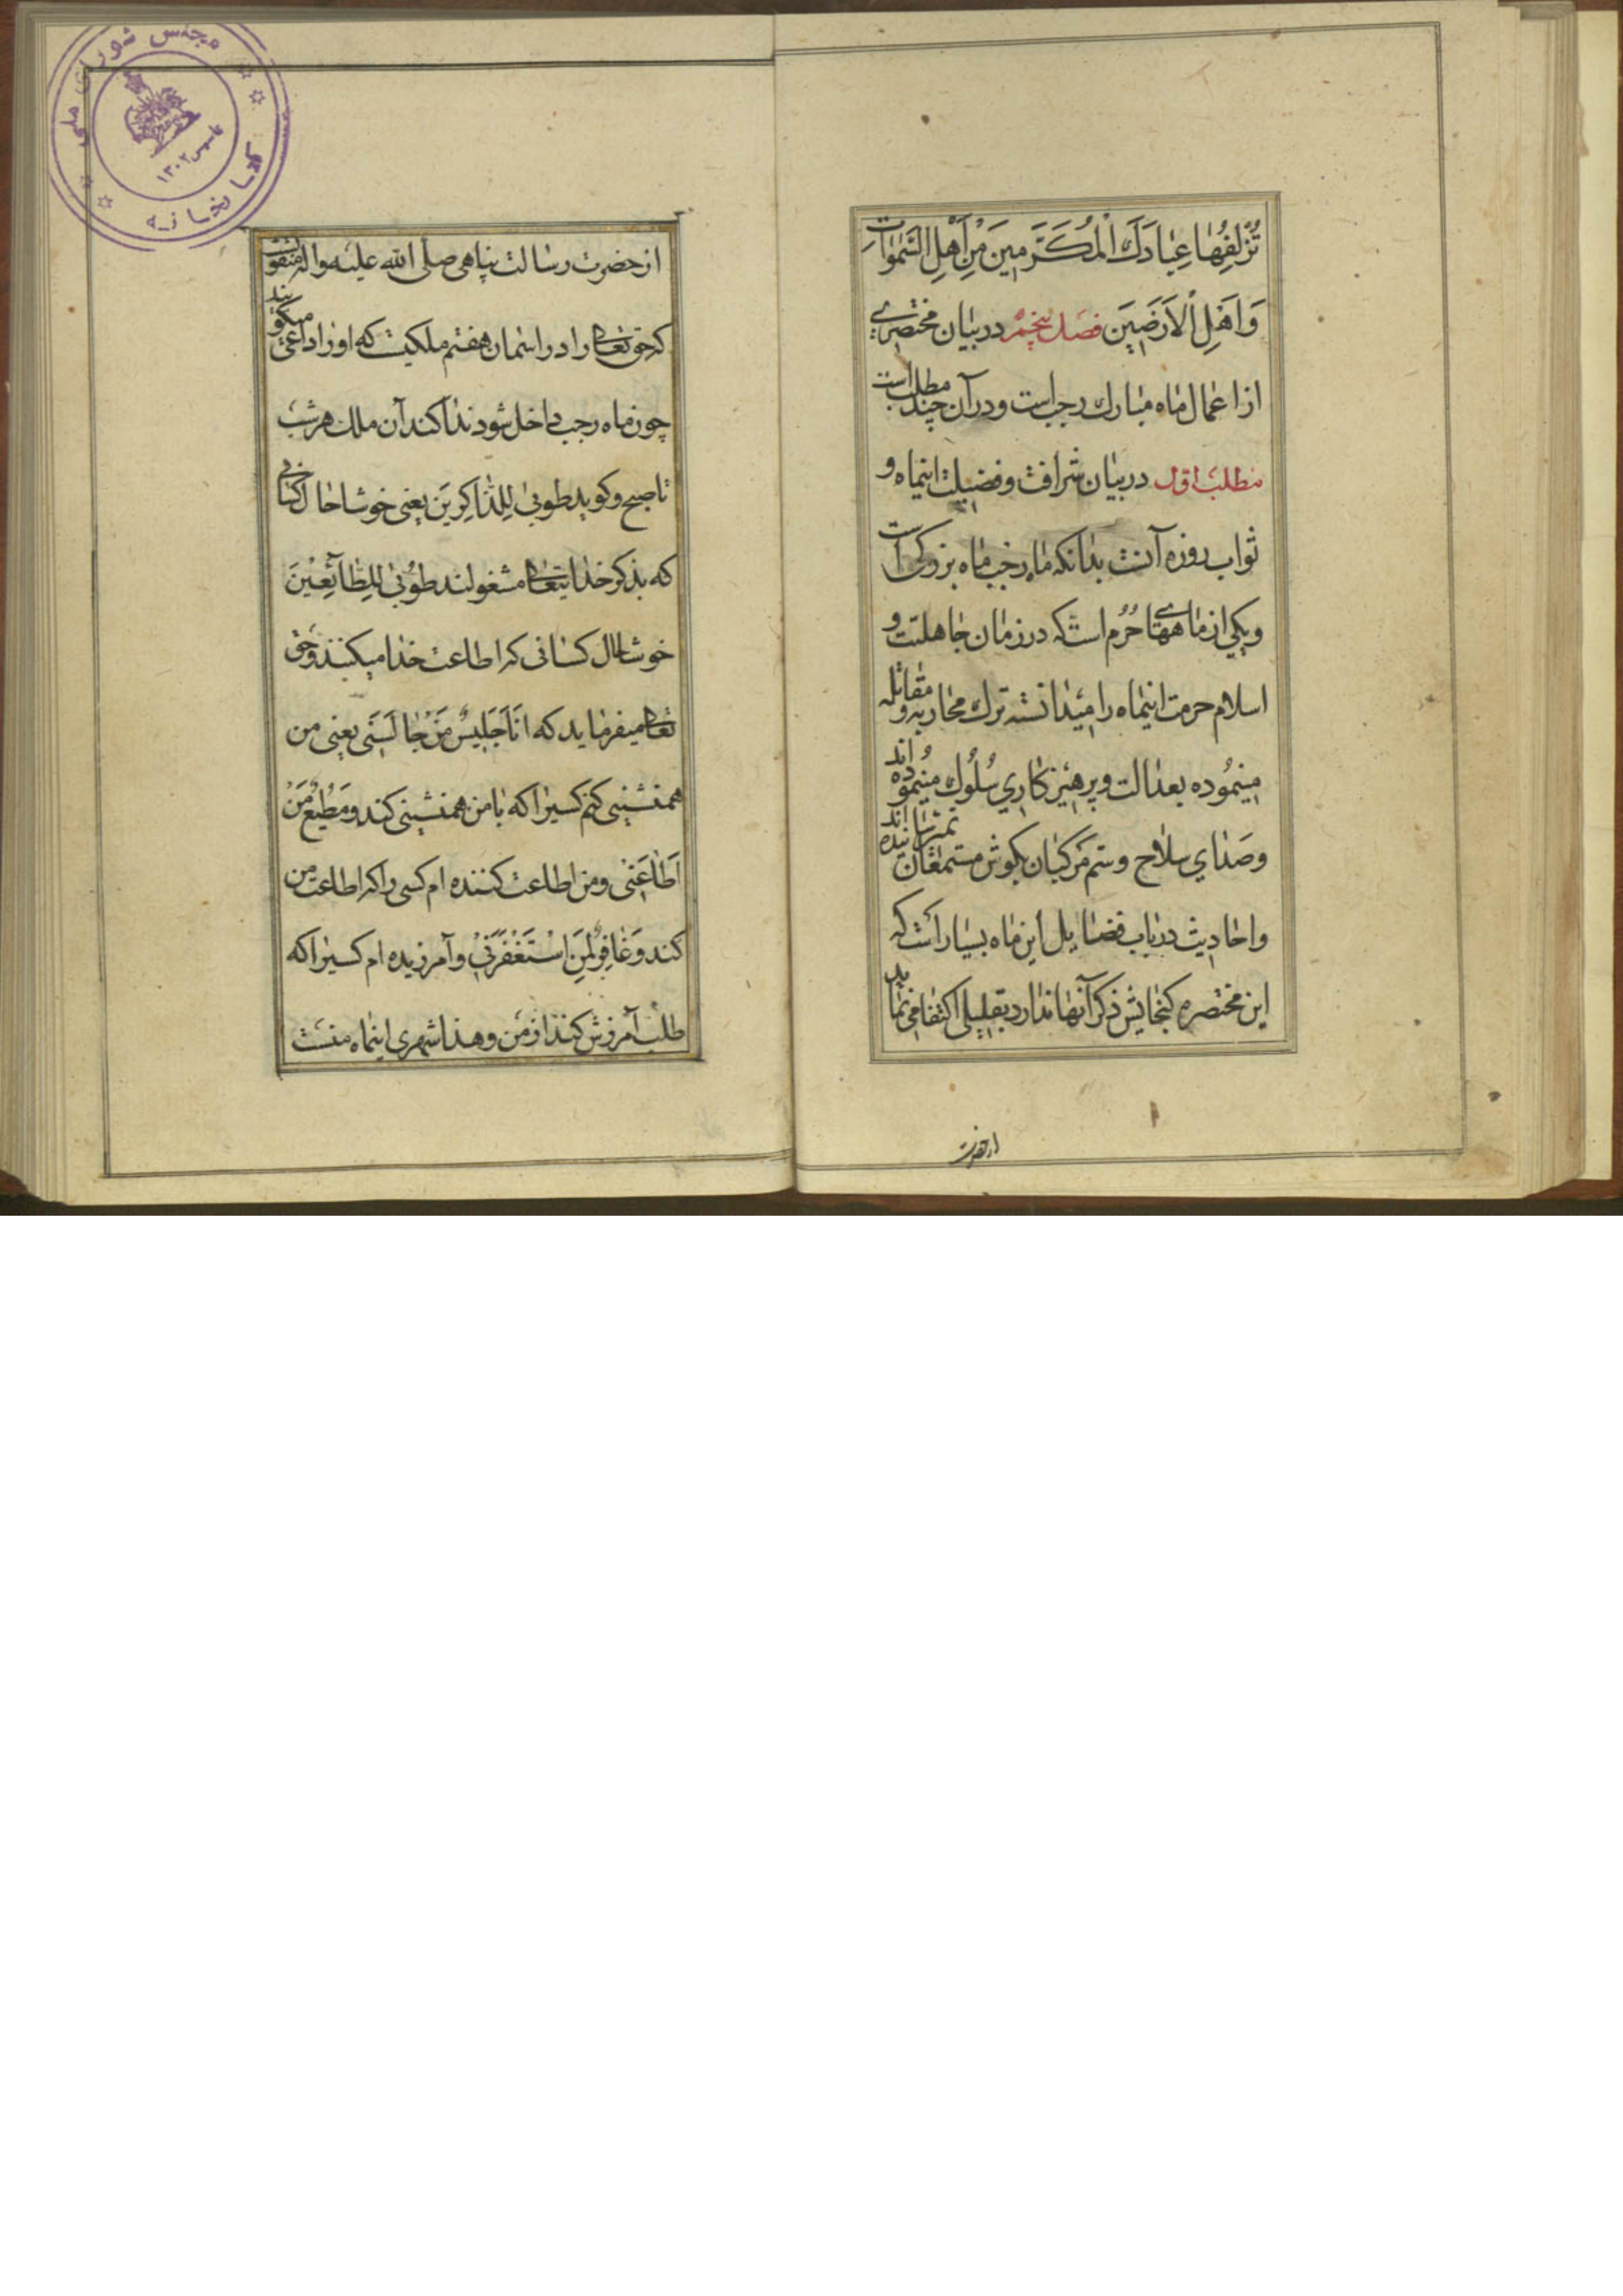 تُزْلِفُهٰا عِبٰادَكَ الْمُكَرَّمِينَ مِنْ اَهْلِ السَّمٰوٰاتِ
وَاَهْلِ الْاَرَضِينَ فصل پنجم در بیان مختصری
از اعمال ماه مبارك رجب است و در آن چند مطلب است
مطلب اول در بیان شرافت و فضیلت اینماه و
ثواب روزه آنست بدانکه ماه رجب ماه بزرکی است
و یکی از ماههای حُرُم است که در زمان جاهلیت و
اسلام حرمت اینماه را میدانسته ترك محاربه و مقاتله
مینموده بعدالت و پرهیزکاری سُلُوك مینمُوده اند
وصدای سلاح و ستم مرکبان بکوش مستمعان نمیرسانیده اند
واحادیث در باب فضایل این ماه بسیار است که
این مختصر کنجایش ذکر آنها ندارد بقلیلی اکتفا می نماید
از حضرت
از حضرت رسالت پناهی صلی الله علیه واله منقولست
که حق تعالی را در اسمان هفتم ملکیست که او را داعی میکویند
چون ماه رجب داخل شود ندا کند آن ملك هر شب
تا صبح و کوید طوبیٰ لِلذّٰاکِرینَ یعنی خوشا حال کسانی
که بذکر خدایتعالی مشغولند طوُبیٰ لِلطّٰآئِعینَ
خوشا حال کسانی که اطاعت خدا میکنند و حق
تعالی میفرماید که اَنَا جَلیسُ مَنْ جٰالَسَنی یعنی من
همنشینی کنم کسیرا که با من همنشینی کند وَمُطیعُ مَنْ
اَطٰاعَنی و من اطاعت کننده ام کسی را که اطاعت من
کند وَغٰافِرٌ لِمَنِ اسْتَغْفَرَنی و آمرزیده ام کسیرا که
طلب آمرزش کند از من و هذا شهری اینماه منست
مجلس شورای ملی
کتابخانه
تاسیس ۱۳۰۲